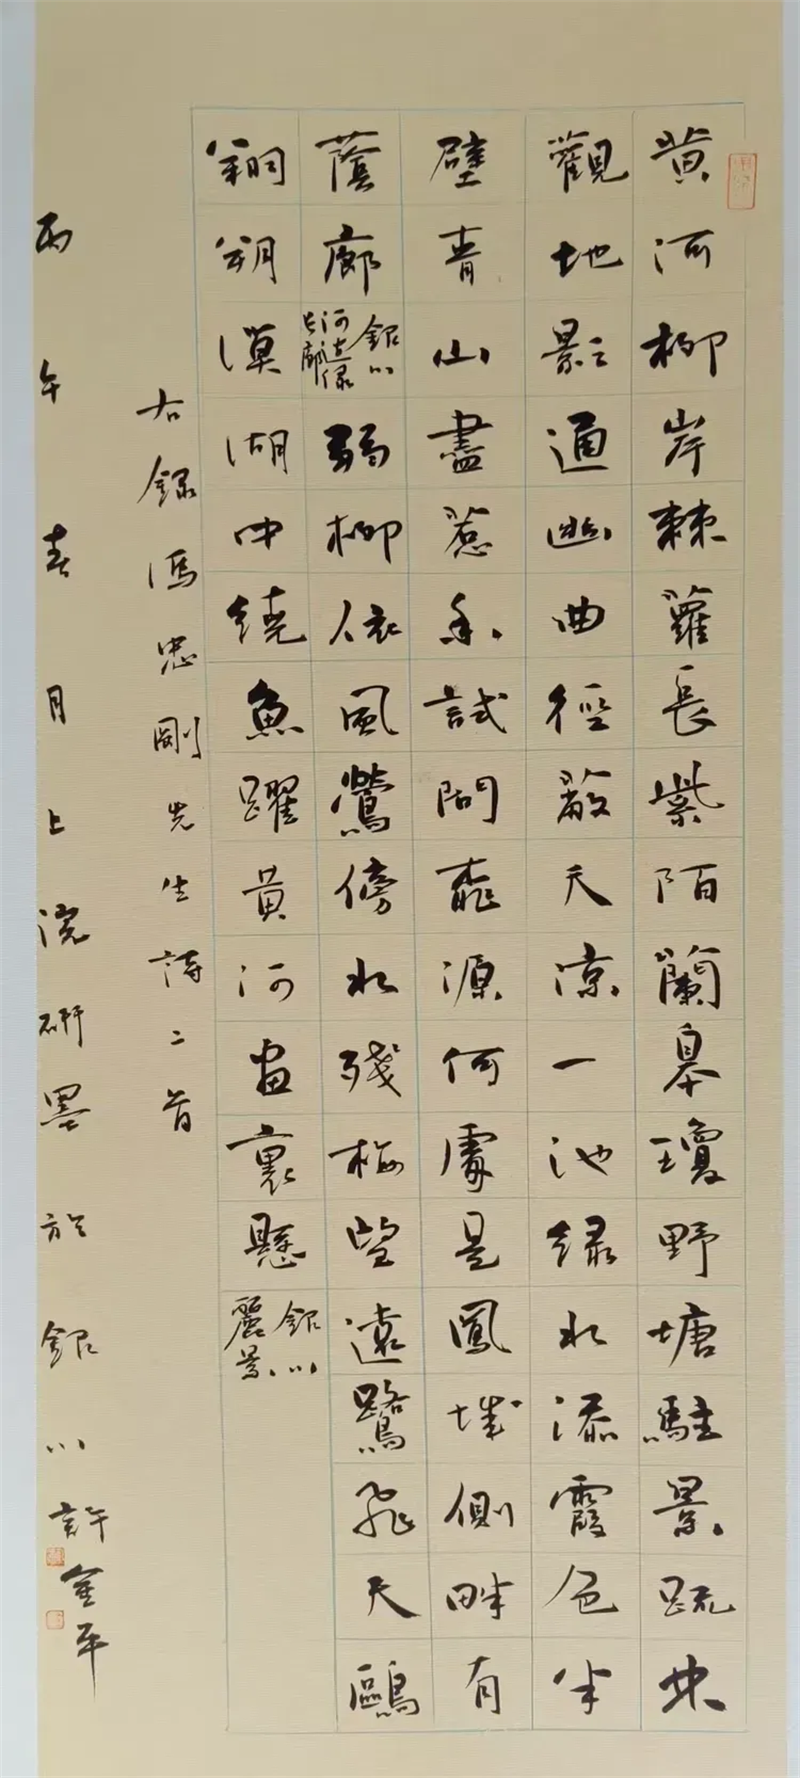 黄河柳岸棘蘿長紫陌蘭皋瓊野塘駐景疏林
觀地影通幽曲徑敞天凉一池緑水添霞色半
壁青山盡惹香試問桃源何處是鳳城側畔有
蔭廊銀川河緑長廊弱柳依風鶯傍水殘梅望遠鷺飛天鷗
翔朔漠湖中繞魚躍黄河畫裏懸銀川麗景
右録馮忠剛先生詩二首
丙午春月上浣研墨於銀川許金平